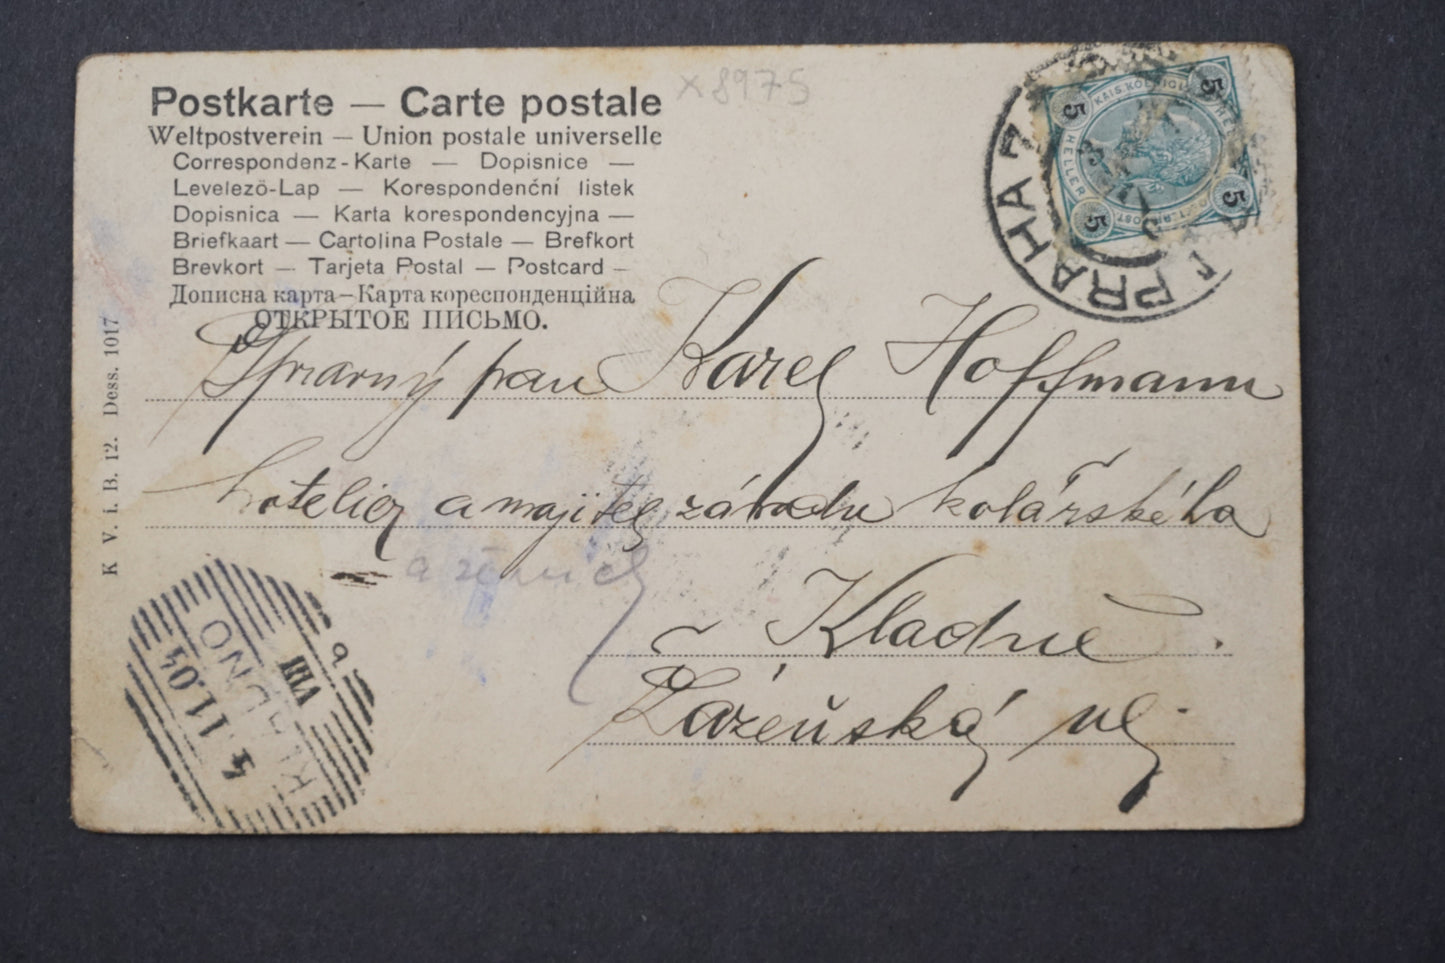 Postkarte — Carte postale
x8975
Weltpostverein — Union postale universelle
Correspondenz-Karte — Dopisnice —
Levelező-Lap — Korespondenční listek
Dopisnica — Karta korespondencyjna —
Briefkaart — Cartolina Postale — Brefkort
Brevkort — Tarjeta Postal — Postcard —
Дописна карта — Карта кореспонденційна
ОТКРЫТОЕ ПИСЬМО.
5 5 5 5
KAIS. KOENIGL.
HELLER
PRAHA
pan Karel Hoffmann
hotelier a majitel závodu kolářského
a
Kladně.
Lázeňská ul.
K. V. i. B. 12. Dess. 1017
KLADNO
4.11.04
VIII